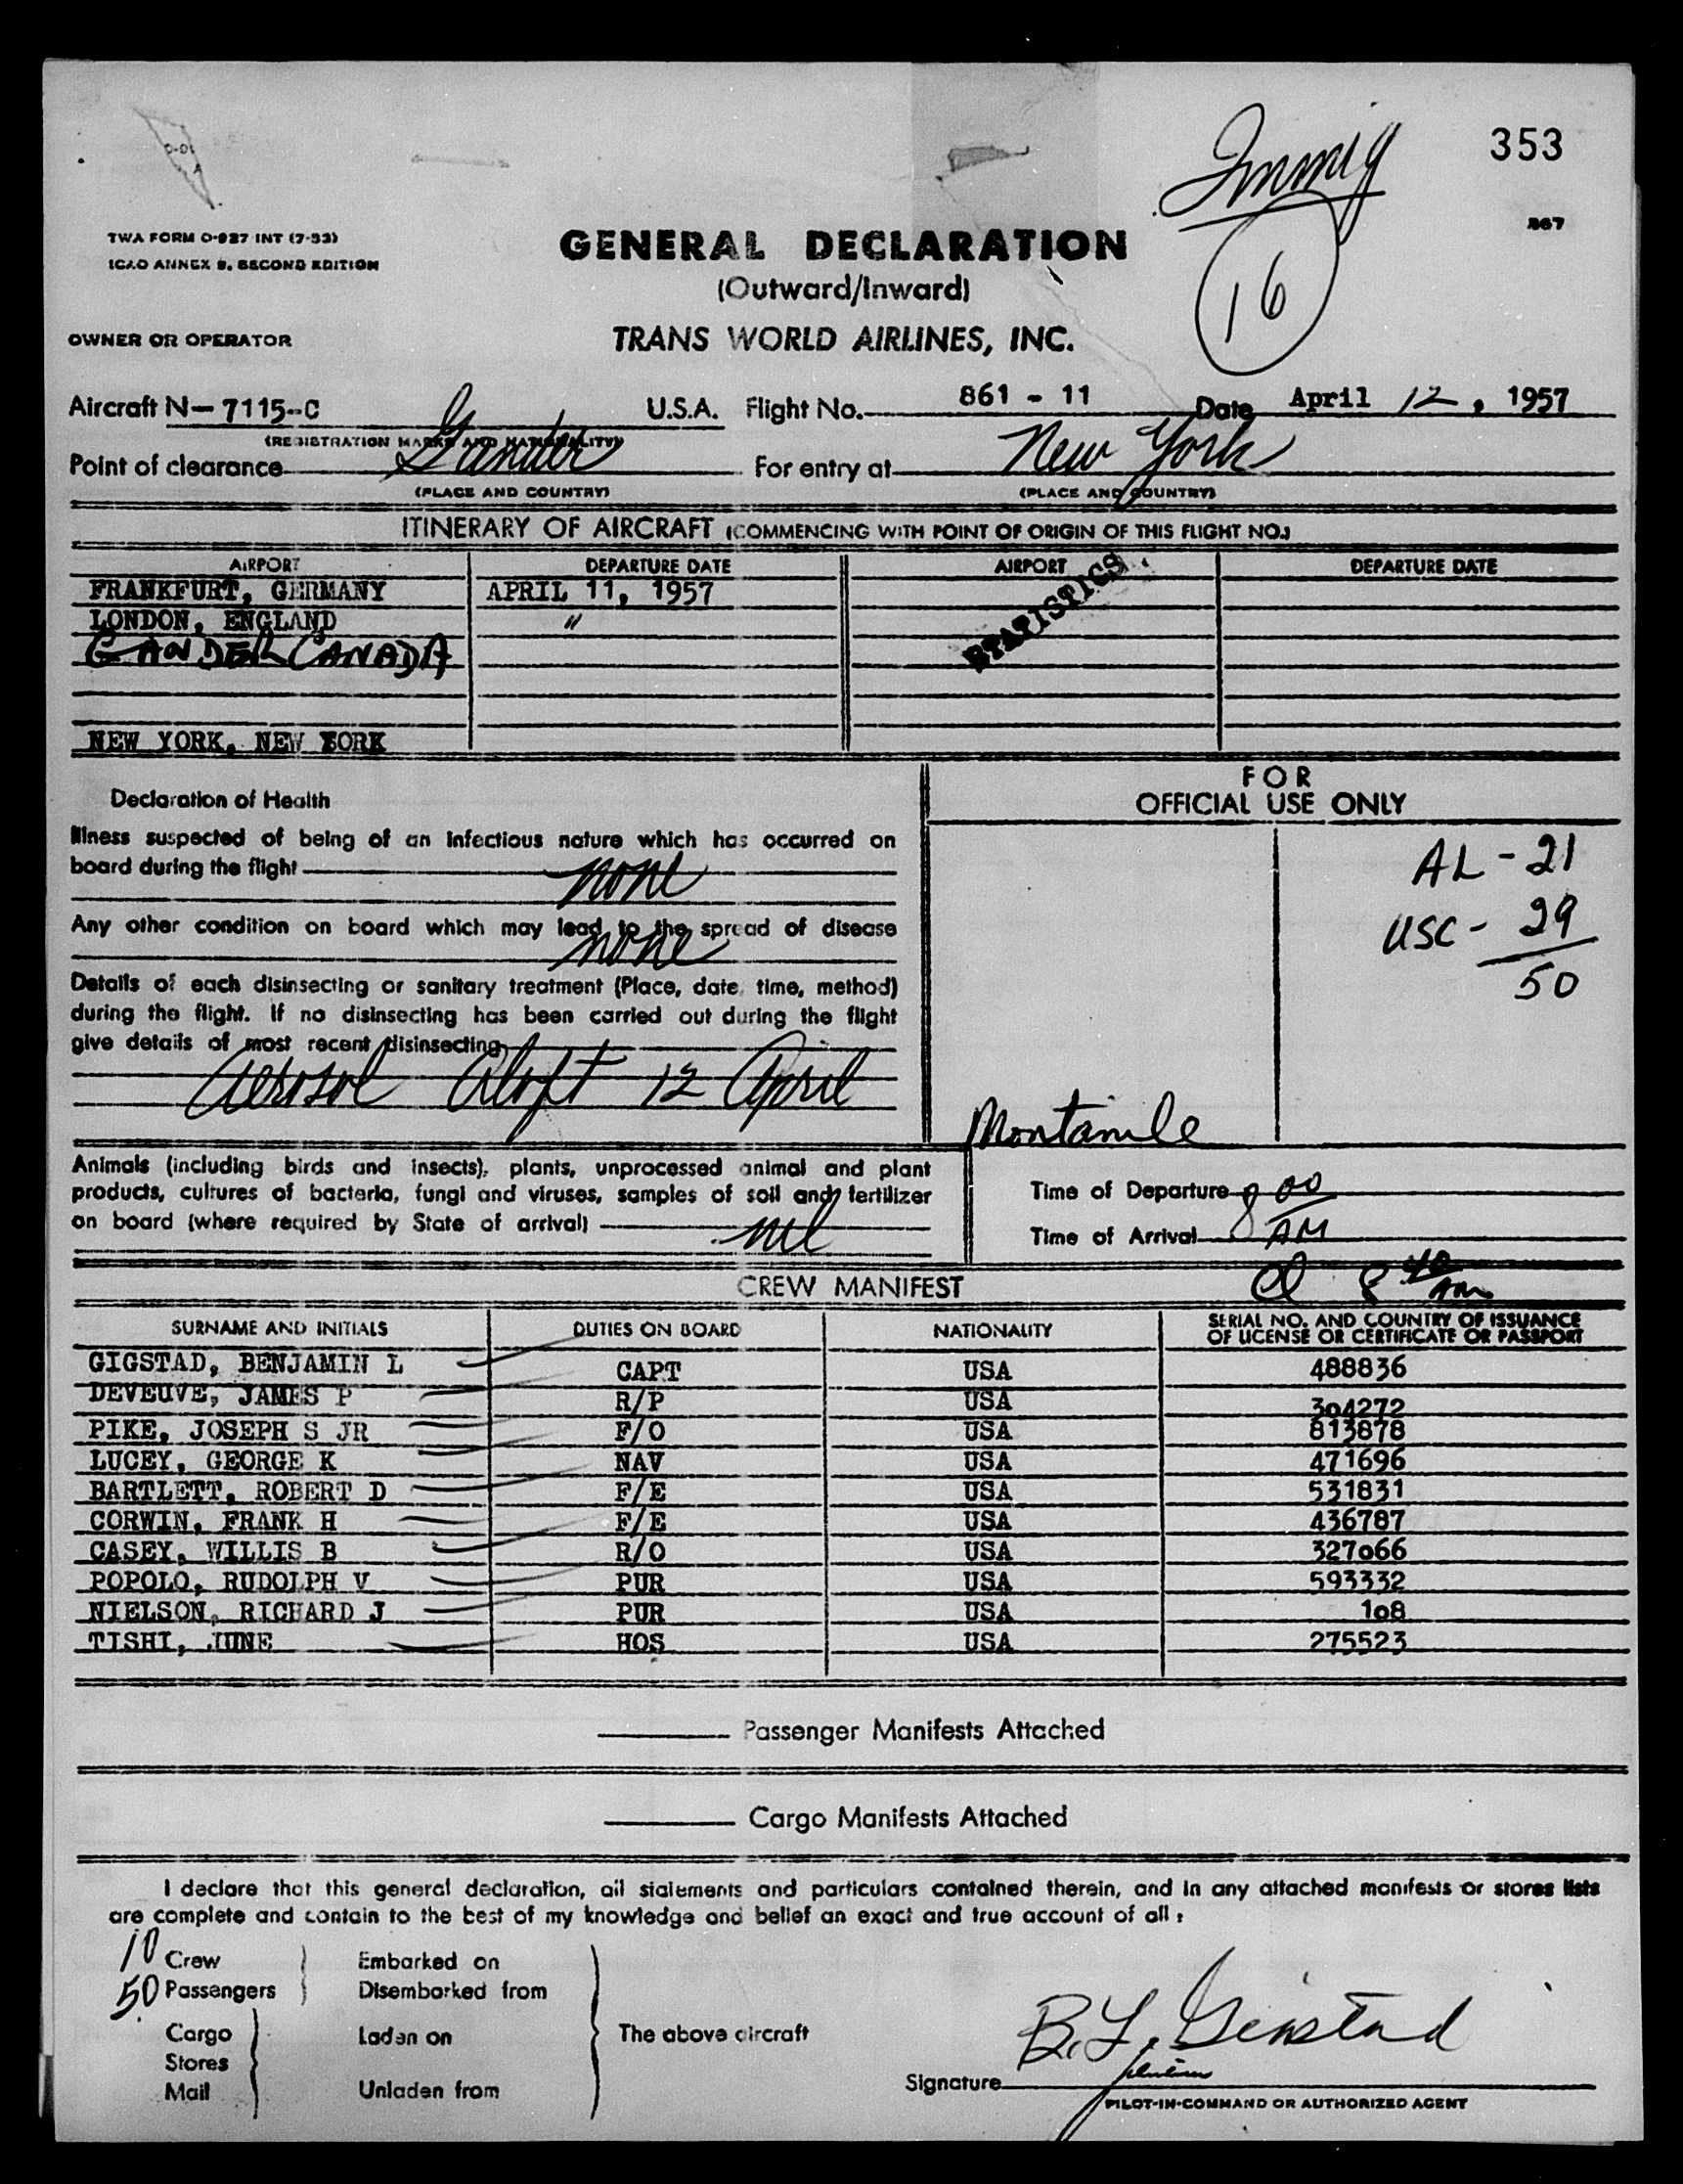 Immig
353
16
867
TWA FORM O-927 INT (7-53)
ICAO ANNEX 9, SECOND EDITION
GENERAL DECLARATION
(Outward/Inward)
OWNER OR OPERATOR
TRANS WORLD AIRLINES, INC.
Aircraft N— 7115-C U.S.A. Flight No. 861 - 11 Date April 12, 1957
(REGISTRATION MARKS AND NATIONALITY)
Point of clearance Gander For entry at New York
(PLACE AND COUNTRY) (PLACE AND COUNTRY)
ITINERARY OF AIRCRAFT (COMMENCING WITH POINT OF ORIGIN OF THIS FLIGHT NO.)
AIRPORT DEPARTURE DATE AIRPORT DEPARTURE DATE
FRANKFURT, GERMANY APRIL 11, 1957
STATISTICS
LONDON, ENGLAND "
GANDER CANADA
NEW YORK, NEW YORK
Declaration of Health
Illness suspected of being of an infectious nature which has occurred on
board during the flight none
Any other condition on board which may lead to the spread of disease
none
Details of each disinsecting or sanitary treatment (Place, date, time, method)
during the flight. If no disinsecting has been carried out during the flight
give details of most recent disinsecting
Aerosol Aloft 12 April
FOR
OFFICIAL USE ONLY
AL - 21
USC - 29
50
Animals (including birds and insects), plants, unprocessed animal and plant
products, cultures of bacteria, fungi and viruses, samples of soil and fertilizer
on board (where required by State of arrival) nil
Time of Departure 8 00
Time of Arrival AM
8 40 AM
CREW MANIFEST
SURNAME AND INITIALS DUTIES ON BOARD NATIONALITY SERIAL NO. AND COUNTRY OF ISSUANCE
OF LICENSE OR CERTIFICATE OR PASSPORT
GIGSTAD, BENJAMIN L CAPT USA 488836
DEVEUVE, JAMES P R/P USA 304272
PIKE, JOSEPH S JR F/O USA 813878
LUCEY, GEORGE K NAV USA 471696
BARTLETT, ROBERT D F/E USA 531831
CORWIN, FRANK H F/E USA 436787
CASEY, WILLIS B R/O USA 327066
POPOLO, RUDOLPH V PUR USA 593332
NIELSON, RICHARD J PUR USA 108
TISHI, JUNE HOS USA 275523
Passenger Manifests Attached
Cargo Manifests Attached
I declare that this general declaration, all statements and particulars contained therein, and in any attached manifests or stores lists
are complete and contain to the best of my knowledge and belief an exact and true account of all:
10 Crew Embarked on
50 Passengers Disembarked from
Cargo Laden on The above aircraft
Stores
Mail Unladen from
B. L. Gigstad
Signature
PILOT-IN-COMMAND OR AUTHORIZED AGENT